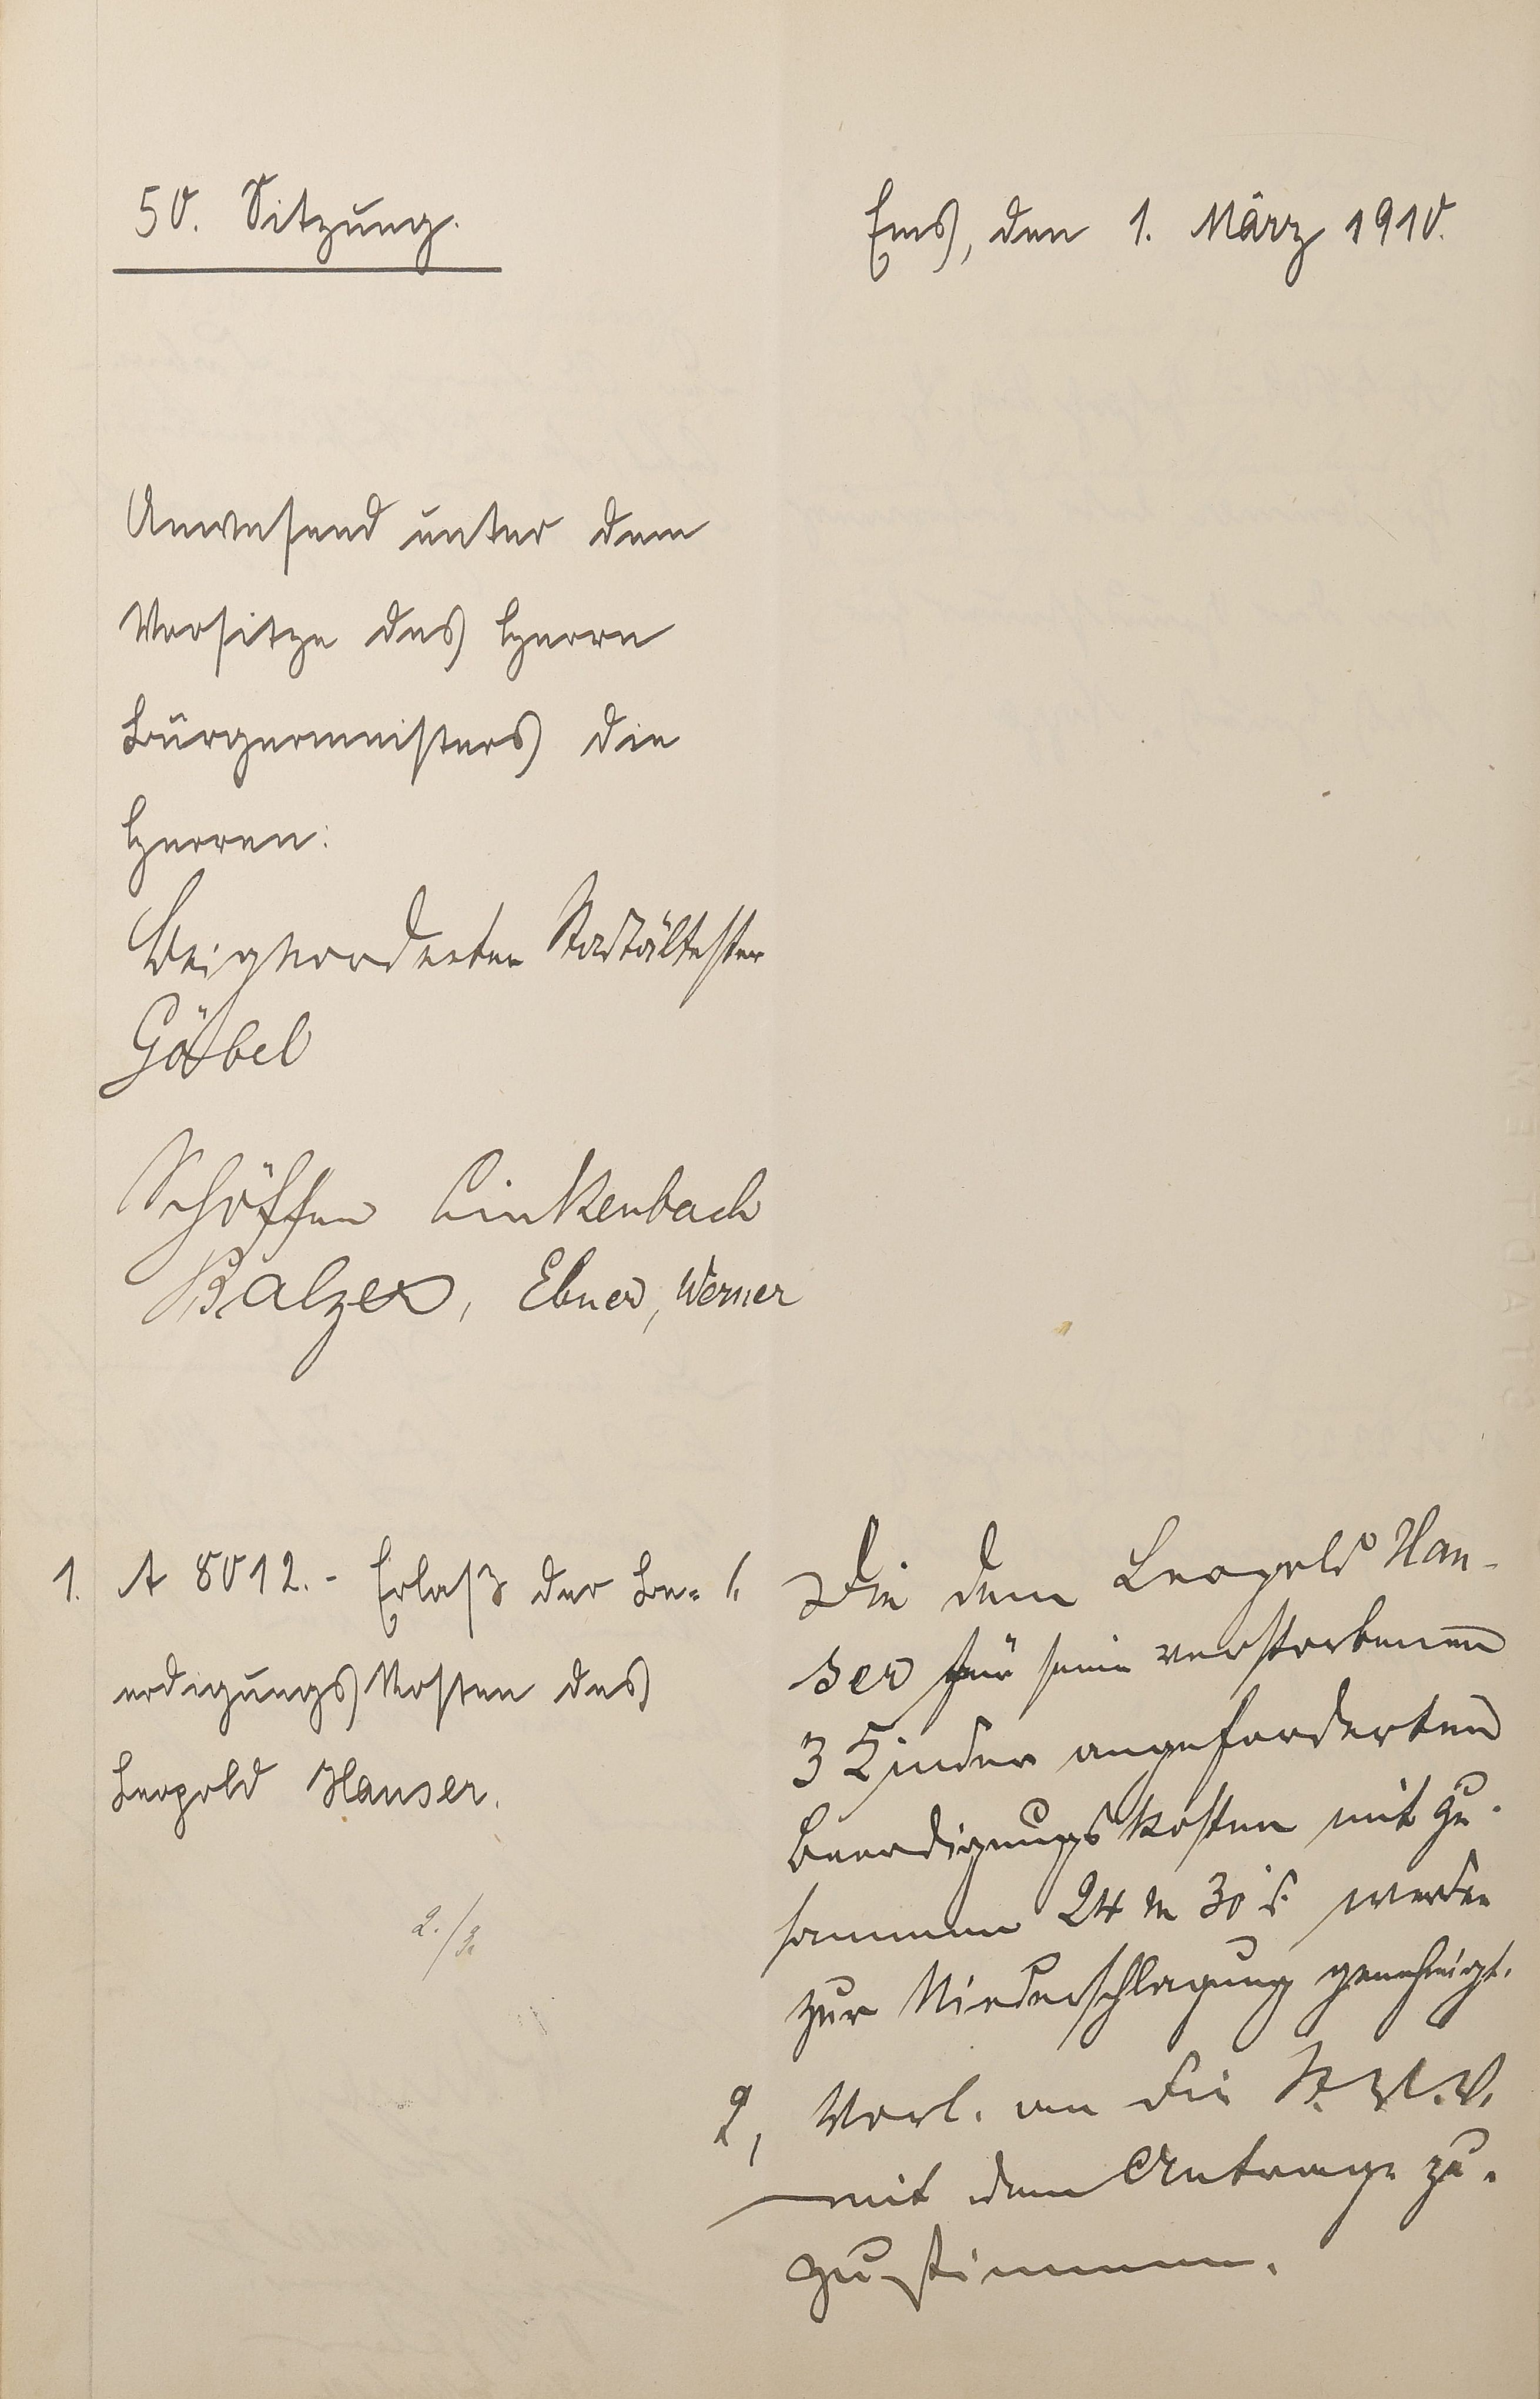 50. Sitzung.
Ems, den 1. März 1910.
Anwesend unter dem
Vorsitze des Herrn
Bürgermeisters die
Herren:
Beigeordneter Stadtältester
Göbel
Schöffen Linkenbach
Balzer, Ebner, Werner
1. A 8012. - Erlaß der Be-
erdigungskosten des
Leopold Hauser.
2./3.
1. Die dem Leopold Hau-
ser für seine verstorbenen
3 Kinder angeforderten
Beerdigungskosten mit zu-
sammen 24 M 30 d. werden
zur Niederschlagung genehmigt.
2, Vorl. an die St. V. V.
mit dem Antrage zu-
zustimmen.